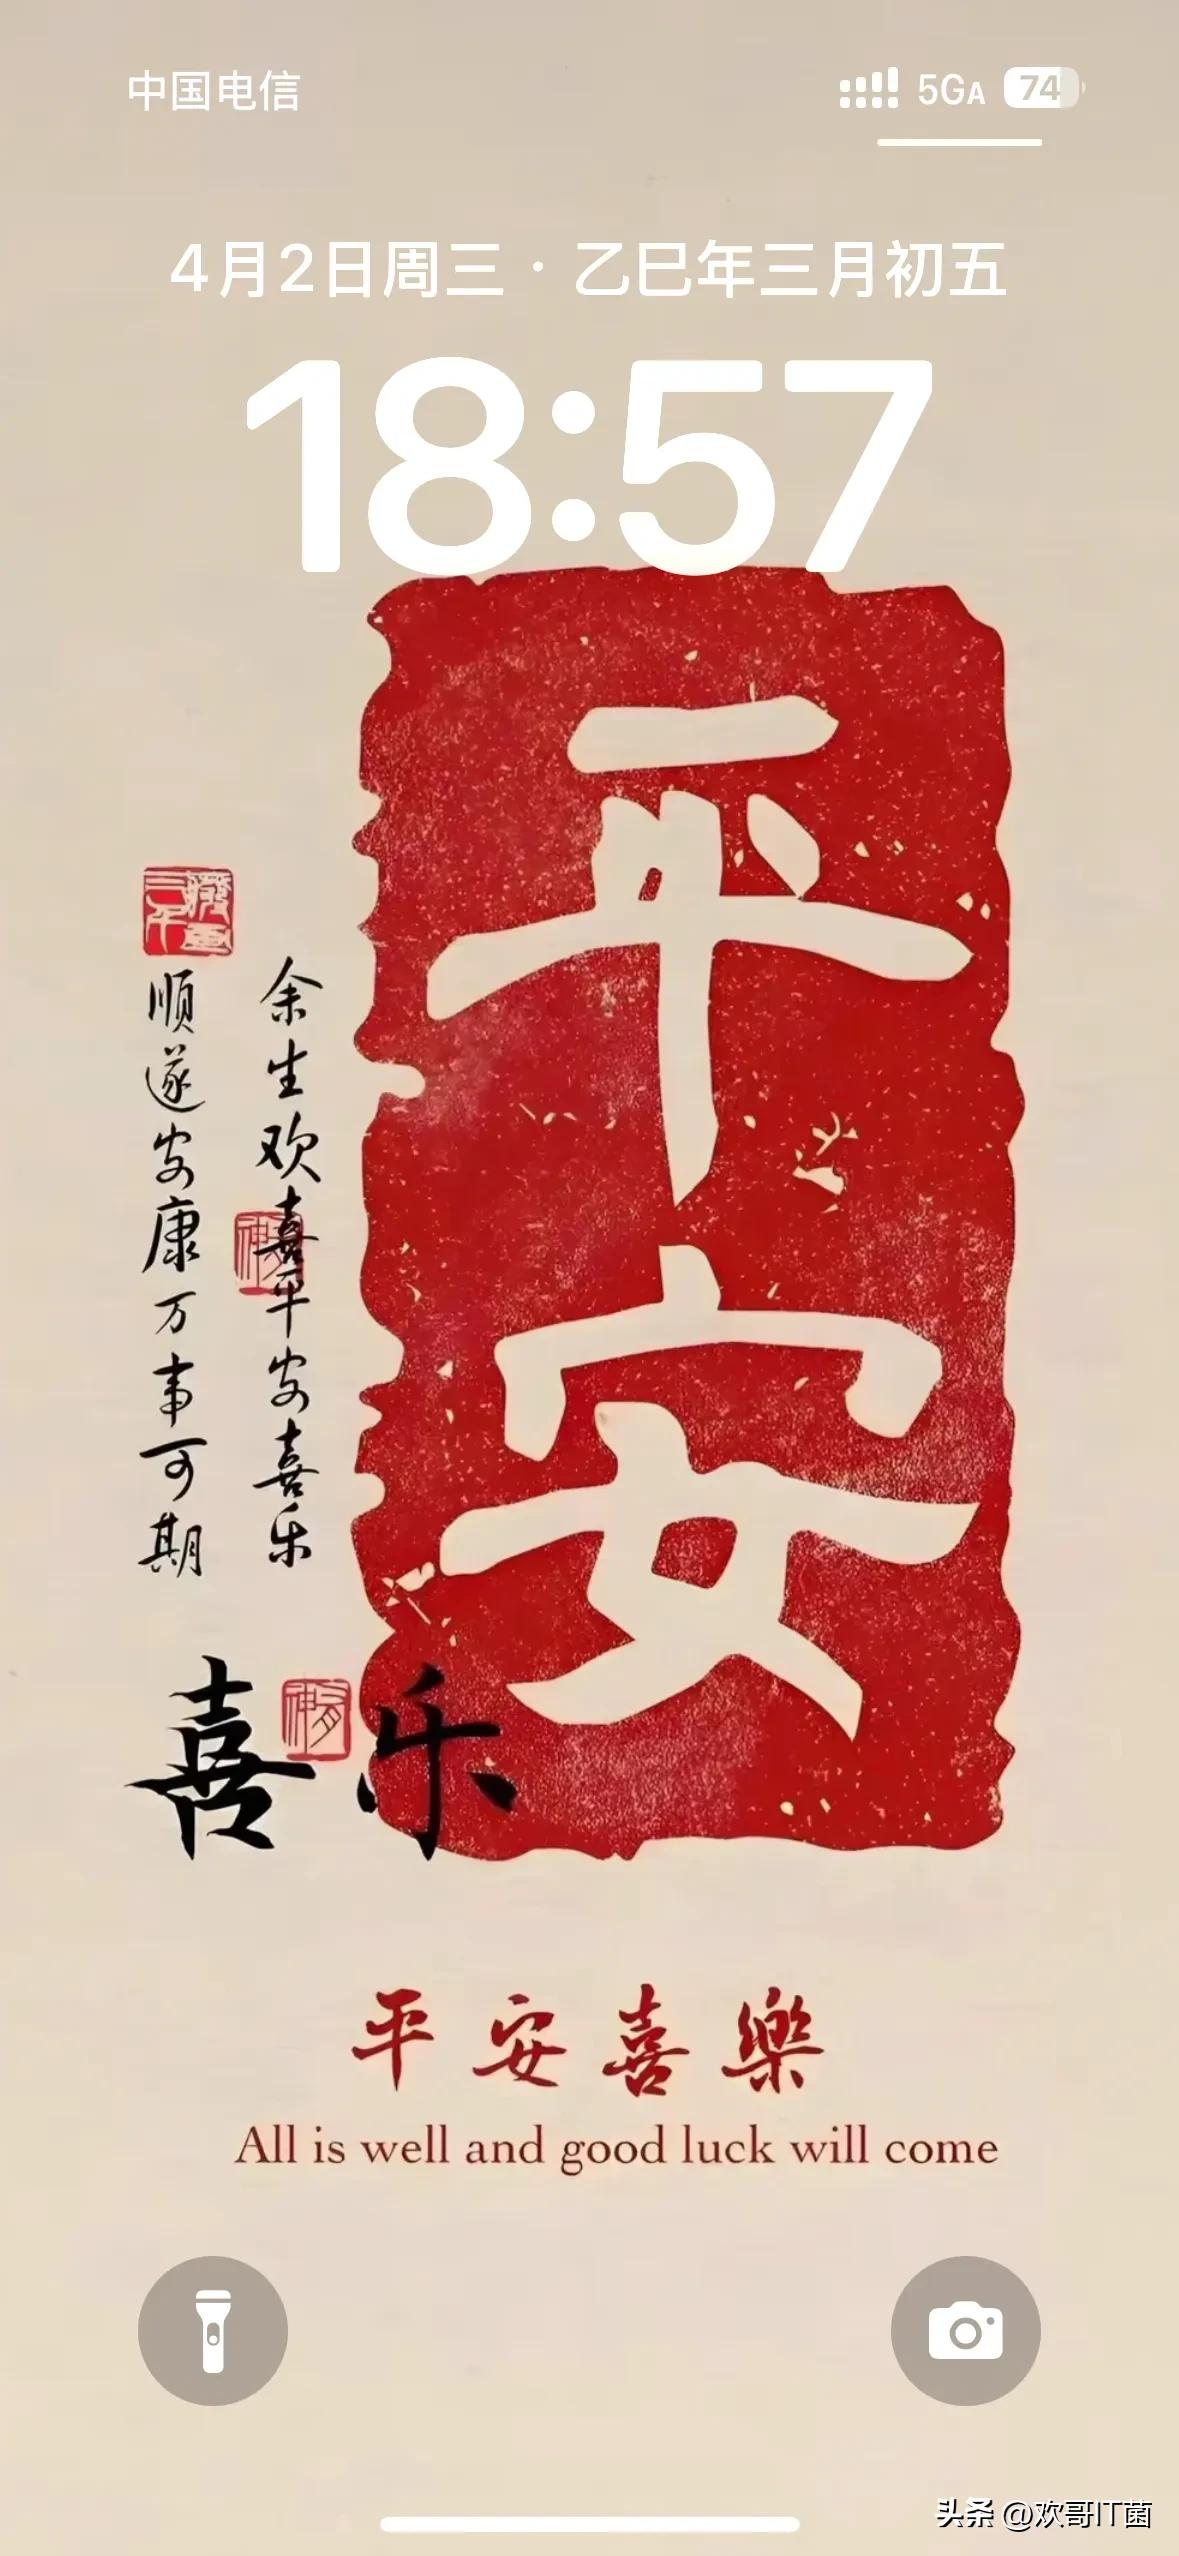 中国电信
5GA 74
4月2日周三 · 乙巳年三月初五
18:57
平安
余生欢喜平安喜乐
顺遂安康万事可期
喜乐
平安喜樂
All is well and good luck will come
头条 @欢哥IT菌